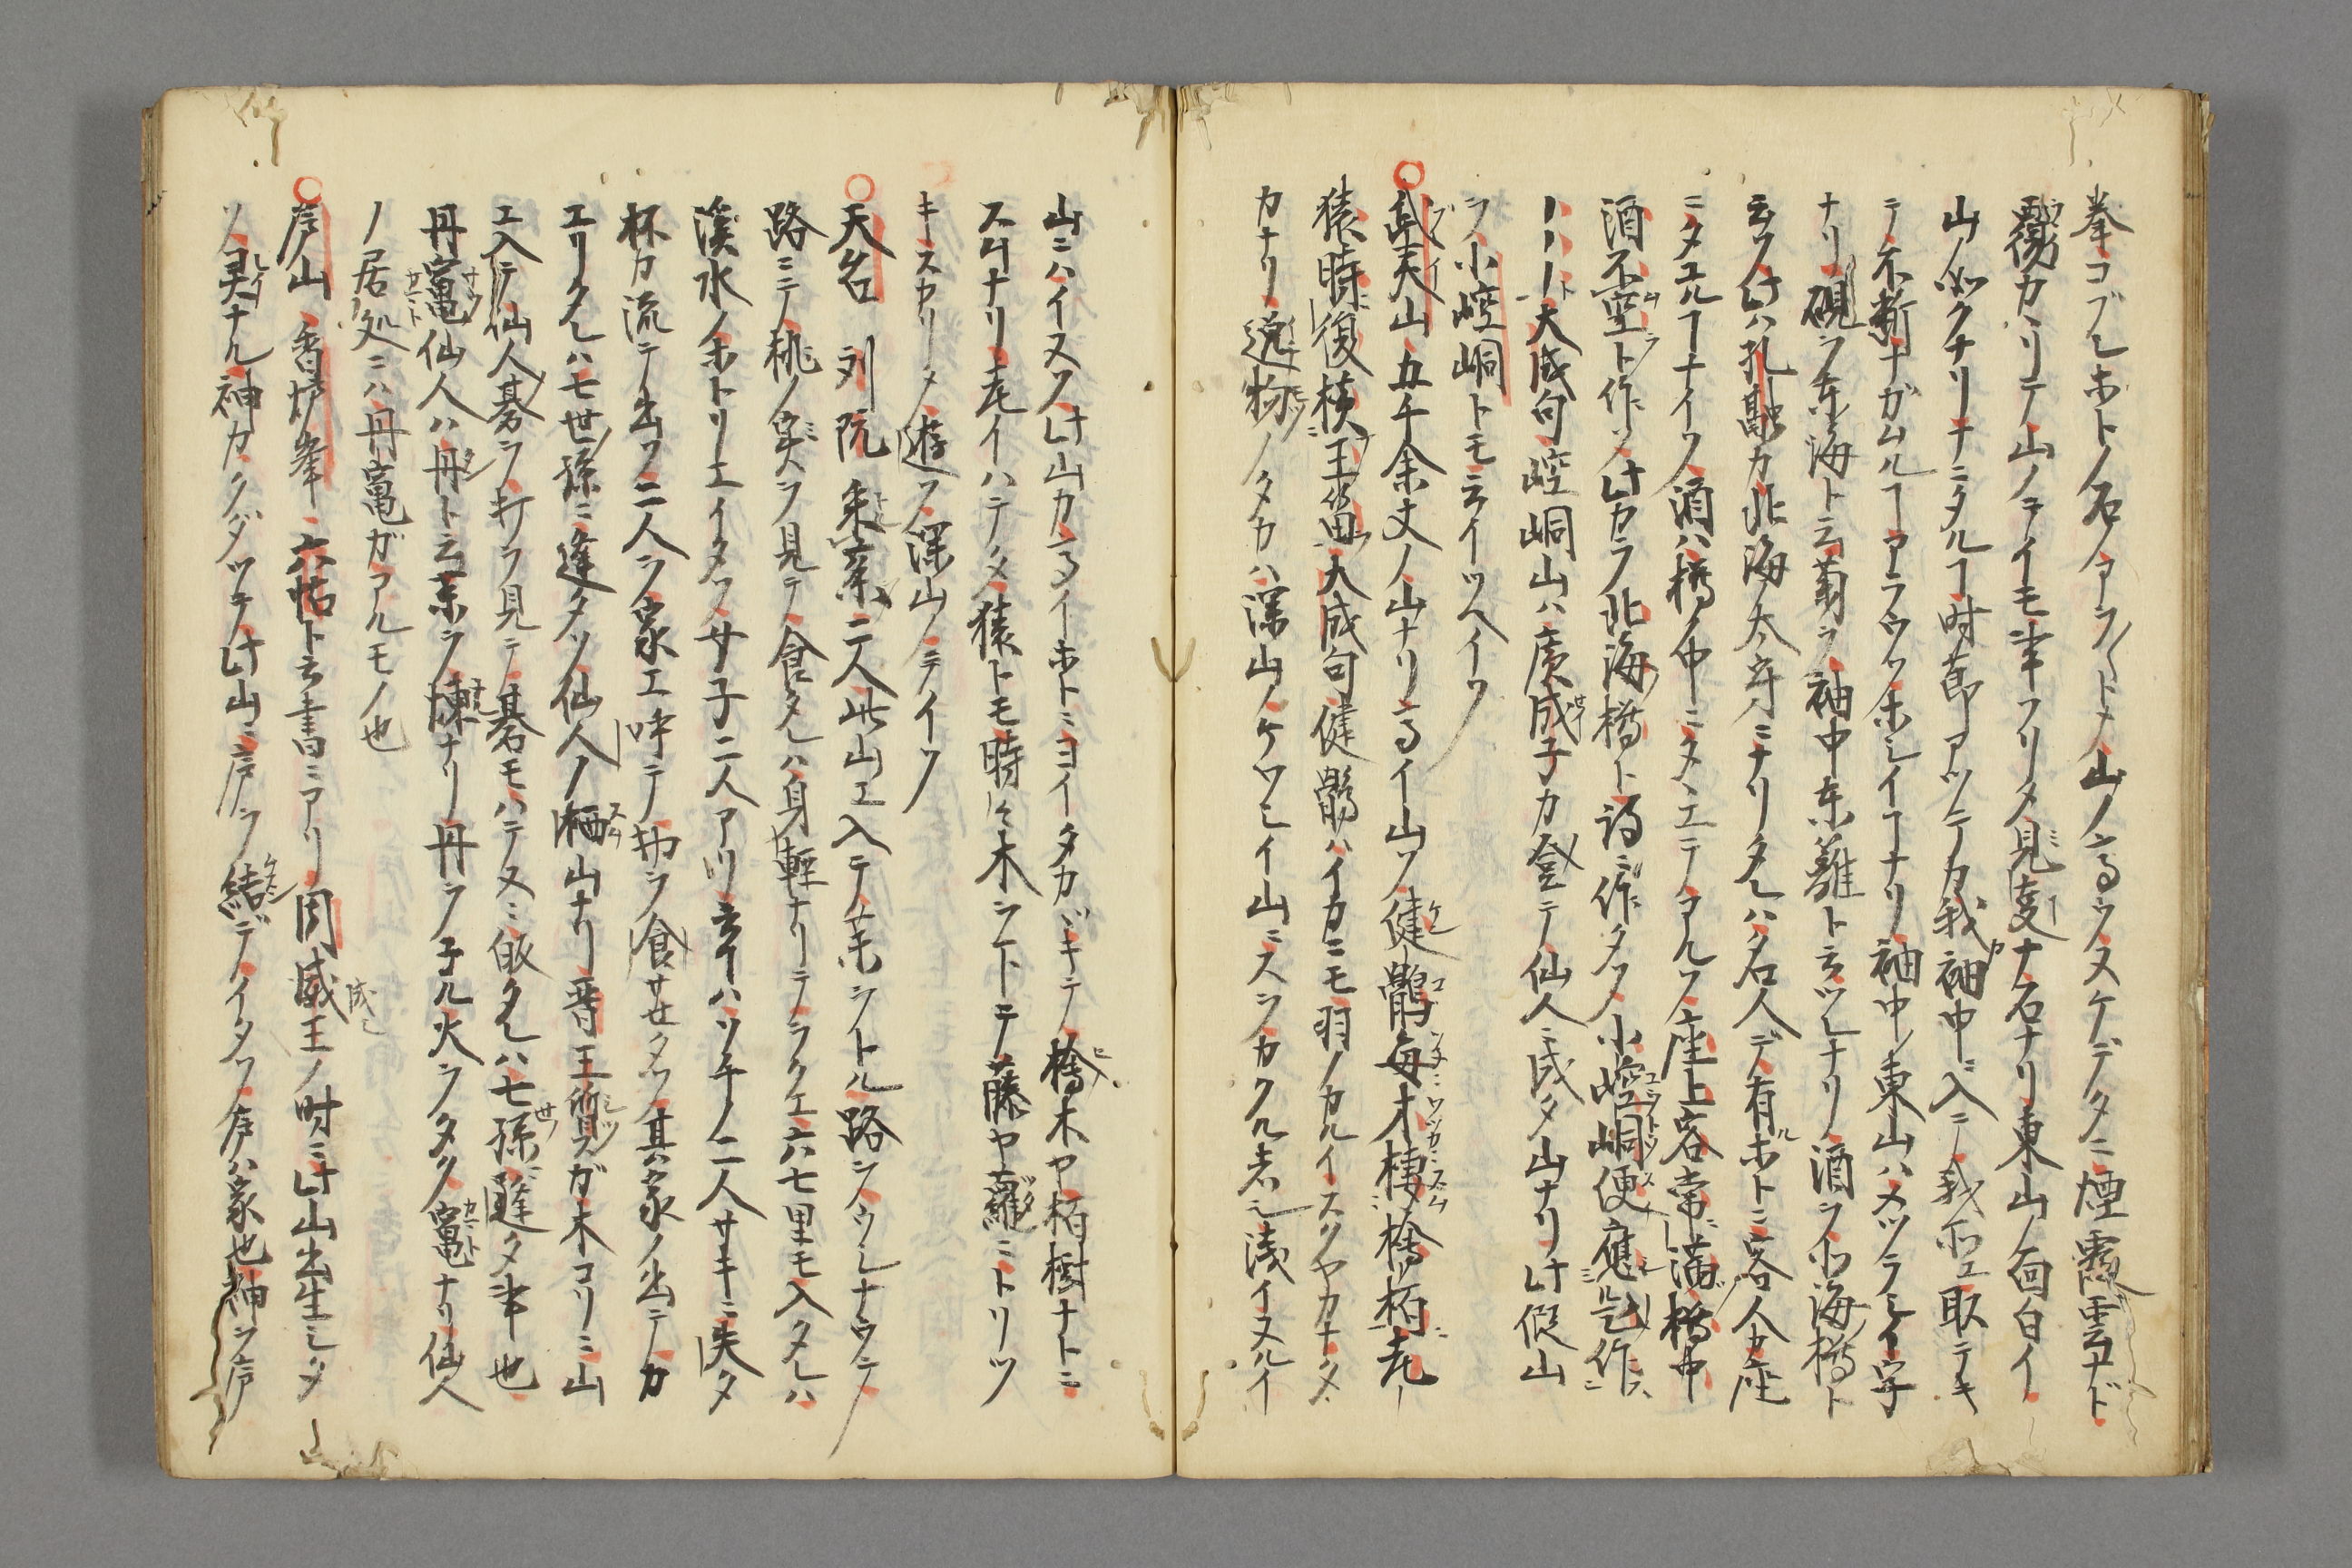 拳コブシホトノ石ノアラ〳〵トメ山ノ高ウヌケデタニ煙霞雲ナド
カヽリテ山ノテイモ半フリメ見度ナ石ナリ東山ノ面白イ
山ノ如クナリナニタルヿ時節アツテカ我袖中ニ入テ我所エ取テキ
テ不断ナガムルヿアラウツホシイヿナリ袖中ノ東山ハメツラシイ字
ナリ硯ヲ東海ト云菊ヲ袖中東籬ト云ツレナリ酒ヲ北海樽ト
云フ叶ハ孔融カ北海ノ太守ニナリタレハ名人デ有ホトニ客人カ座
ニタエルヿナイソ酒ハ樽ノ中ニタヽエテアルソ座上客常満樽中
酒不空ト作ソ此カラ北海樽ト詩ニ作タソ小崆峒便應是作
ーーー大成句崆峒山ハ廣成子カ登テ仙人ニ成タ山ナリ此假山
ヲ小崆峒トモ云イツヘイソ
○武夷山五千余丈ノ山ナリ高イ山ソ健鶻毎才棲檜柏老
猿時復撗王笛大成句健鶻ハイカニモ羽ノカルイスクヤカナタ
カナリ逸物ノタカハ深山ノケワシイ山ニスヲカクル者ソ浅イヌルイ
山ニハイヌソ此山カ高イホトニヨイタカヾキテ檜木ヤ柏樹ナトニ
スムナリ老イハテタ猿トモ時々木ヲ下テ藤ヤ羅ニトリツ
キスカリメ遊フ深山ノテイソ
○天台 刘阮 釆藥二人此山エ入テ茶ヲトル路ヲウシナウテ
路ニテ桃ノ実ヲ見テ食タレハ身軽ナリテラクエ六七里モ入タレハ
溪水ノホトリエイタソ女子二人アリ云イハソチノ二人サキニ失タ
杯カ流テ出ソ二人ヲ家エ呼テ物ヲ食サせタソ其家ノ出テカ
エリタレハ七世ノ孫ニ逢タソ仙人ノ栖山ナリ晋王質ガ木コリニ山
エ入テ仙人碁ヲ打ヲ見テ碁モハテヌニ皈タレハ七孫ニ逢タ半也
丹竃仙人ハ丹ト云薬ヲ煉ナリ丹ヲ子ル火ヲタク竃ナリ仙人
ノ居処ニハ丹竃ガアルモノ也
○庐山 香炉峯 六帖ト云書ニアリ周威王ノ時ニ此山出生シタ
ソ灵ナル神カクダツテ此山ニ庐ヲ結デイタソ庐ハ家也神ヲ庐